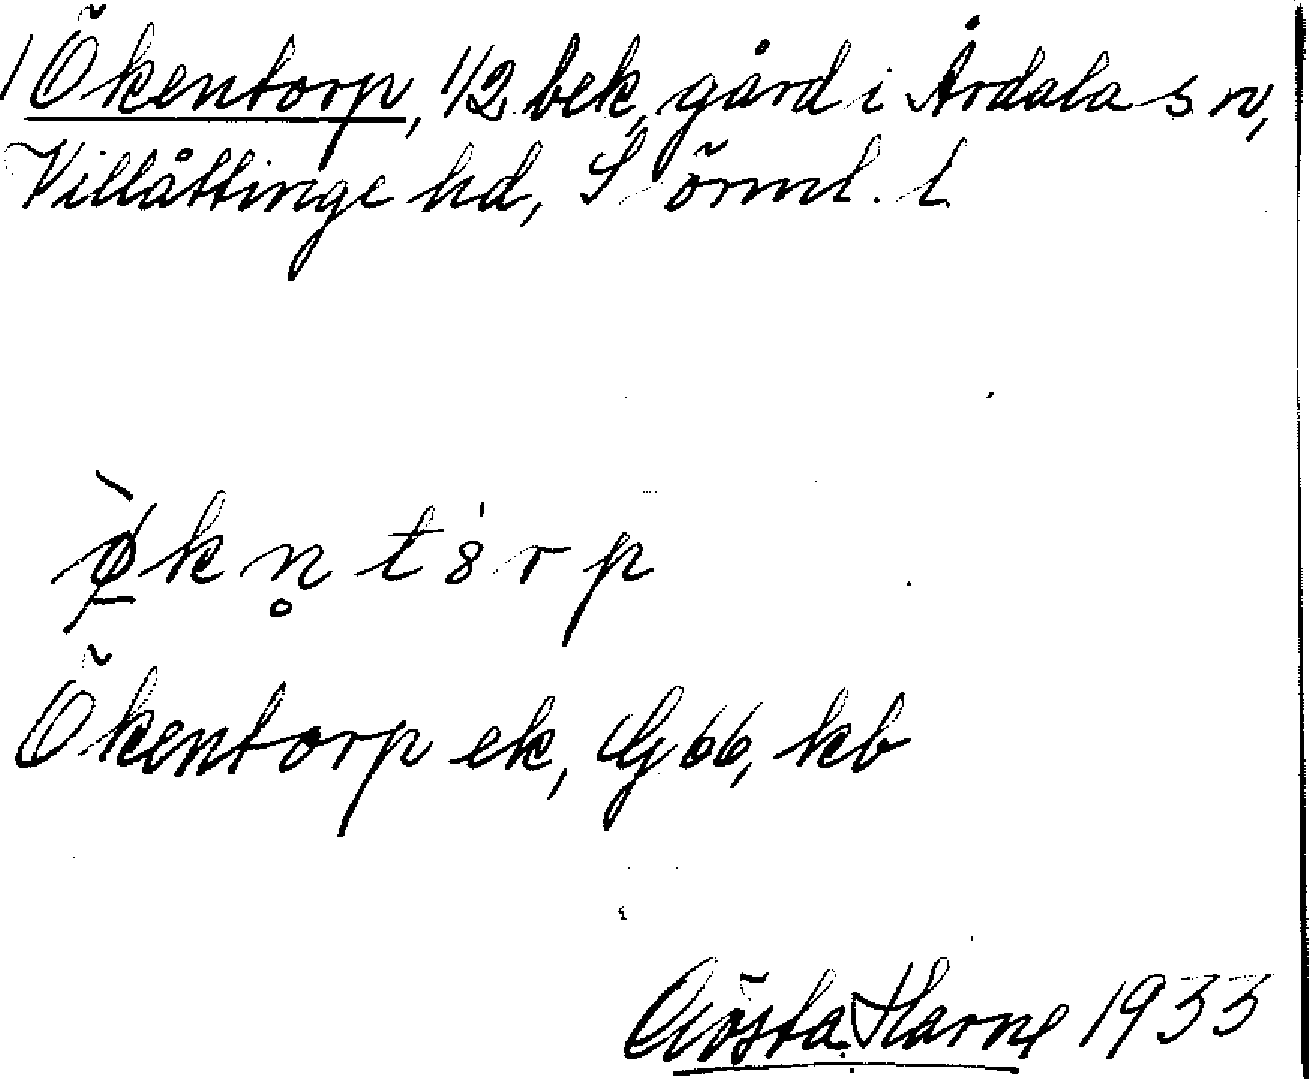 Ökentorp, 1/2 bek, gård i Årdala sn,
Villåttinge hd, Sörml. l
ø̱̀kn̥tȯrp
Ökentorp ek, G 66, kb
Gösta Harne 1933